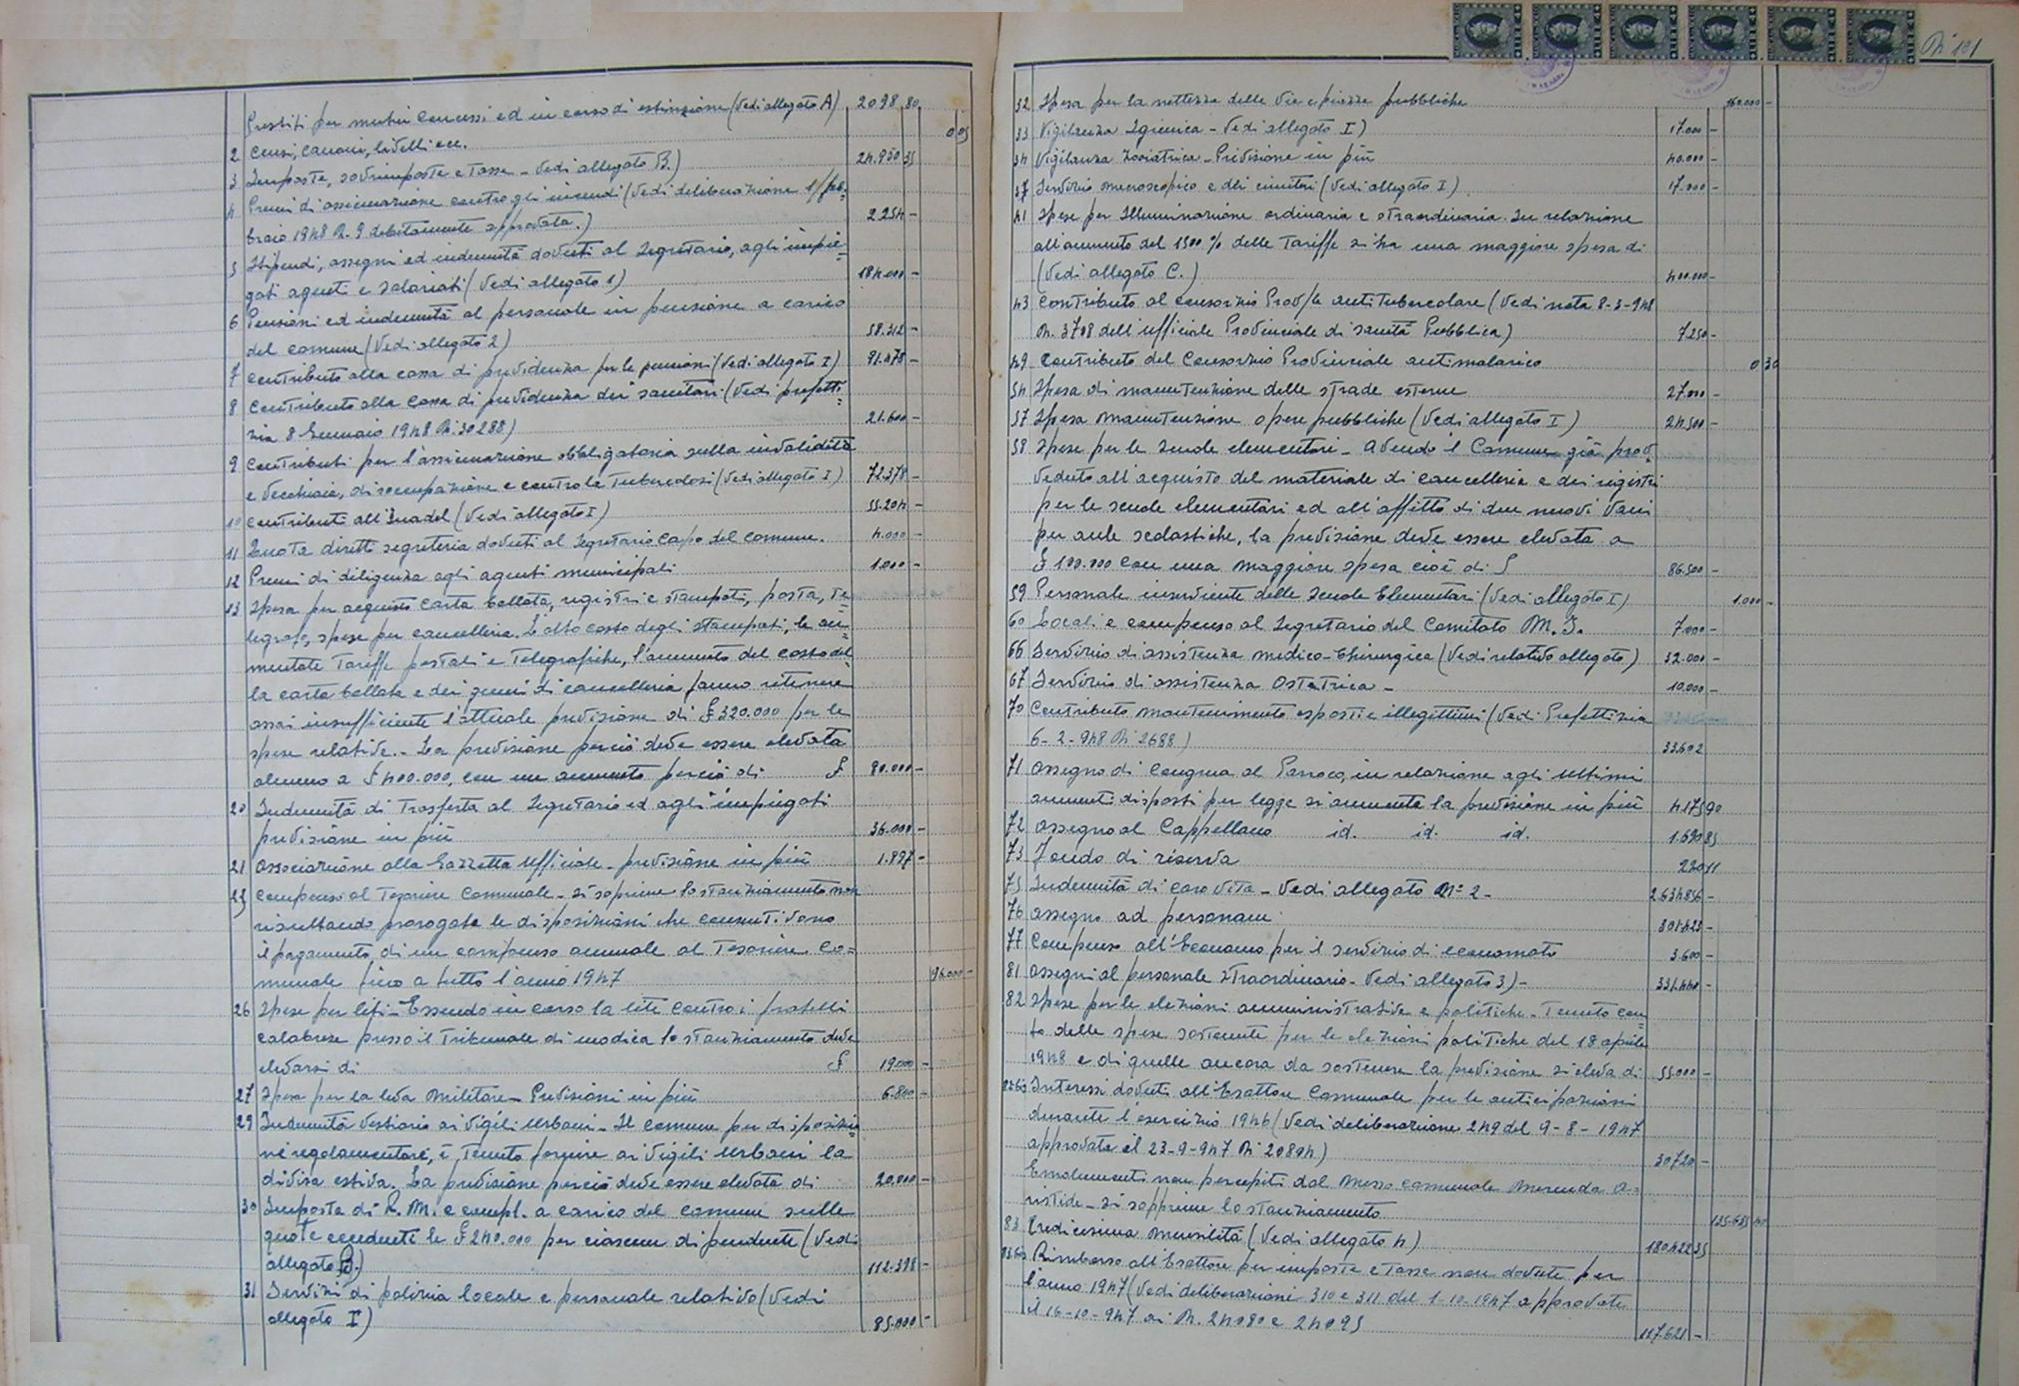 Prestiti per mutui concessi ed in corso di estinzione (Vedi allegato A) 2098,80
0 05
2 Censi, canoni, livelli ecc.
3 Imposte, sovrimposte e tasse - Vedi allegato B.) 24.950 35
4 Premi di assicurazione contro gli incendi (Vedi deliberazione 1/feb-
braio 1948 N. 9 debitamente approvata.) 2.254 -
5 Stipendi, assegni ed indennità dovuti al Segretario, agli impie=
gati agenti e salariati (Vedi allegato 1) 184.000 -
6 Pensioni ed indennità al personale in pensione a carico
del comune (Vedi allegato 2) 58.312 -
7 Contributo alla cassa di previdenza per le pensioni (Vedi allegato I) 91.478 -
8 Contributo alla cassa di previdenza dei sanitari (Vedi prefetti=
zia 8 Gennaio 1948 N. 30288) 21.600 -
9 Contributi per l'assicurazione obbligatoria sulla invalidità
e vecchiaia, disoccupazione e contro la tubercolosi (Vedi allegato I) 72.378 -
10 Contributi all'Inadel (Vedi allegato I) 55.204 -
11 Quota diritti segreteria dovuti al Segretario Capo del comune. 4.000 -
12 Premi di diligenza agli agenti municipali 1.000 -
13 Spesa per acquisto carta bollata, registri e stampati, posta, te=
legrafo, spese per cancelleria. L'alto costo degli stampati, le au=
mentate tariffe postali e telegrafiche, l'aumento del costo del=
la carta bollata e dei generi di cancelleria fanno ritenere
assai insufficiente l'attuale previsione di £ 320.000 per le
spese relative. - La previsione perciò deve essere elevata
almeno a £ 400.000, con un aumento perciò di £ 80.000 -
20 Indennità di trasferta al Segretario ed agli impiegati
previsione in più 36.000 -
21 Associazione alla Gazzetta Ufficiale - previsione in più 1.897 -
25 Compenso al Tesoriere Comunale - si sopprime lo stanziamento non
risultando prorogate le disposizioni che consentivano
il pagamento di un compenso annuale al Tesoriere Co=
munale fino a tutto l'anno 1947 96.000 -
26 Spese per liti - Essendo in corso la lite contro i fratelli
Calabrese presso il Tribunale di Modica lo stanziamento deve
elevarsi di £ 19.000 -
27 Spesa per la leva militare - Previsioni in più 6.800 -
29 Indennità vestiario ai vigili urbani - Il comune per disposizio=
ni regolamentari, è tenuto fornire ai vigili urbani la
divisa estiva. La previsione perciò deve essere elevata di 20.000 -
30 Imposta di R. M. e compl. a carico del comune sulle
quote eccedenti le £ 240.000 per ciascun dipendente (Vedi
allegato B.) 112.398 -
31 Servizi di polizia locale e personale relativo (Vedi
allegato I) 85.000 -
N. 101
32 Spesa per la nettezza delle vie e piazze pubbliche 16.000 -
33 Vigilanza Igienica - Vedi allegato I) 17.000 -
34 Vigilanza zooiatrica - Previsione in più 40.000 -
37 Servizio necroscopico e dei cimiteri (Vedi allegato I) 17.000 -
41 Spese per Illuminazione ordinaria e straordinaria. In relazione
all'aumento del 1500 % delle tariffe si ha una maggiore spesa di
(Vedi allegato C.) 400.000 -
43 Contributo al consorzio Prov/le antitubercolare (Vedi nota 8-3-948
N. 3708 dell'ufficiale Provinciale di sanità Pubblica) 7.250 -
49 Contributo del Consorzio Provinciale antimalarico 0 30
54 Spesa di manutenzione delle strade esterne 27.000 -
57 Spesa manutenzione opere pubbliche (Vedi allegato I) 24.500 -
58 Spese per le Scuole elementari - Avendo il Comune già prov=
veduto all'acquisto del materiale di cancelleria e dei registri
per le scuole elementari ed all'affitto di due nuovi vani
per aule scolastiche, la previsione deve essere elevata a
£ 100.000 con una maggiore spesa cioè di £ 86.500 -
59 Personale inserviente delle Scuole Elementari (Vedi allegato I) 1.000 -
60 Locali e compenso al Segretario del Comitato M. I. 7.000 -
66 Servizio di assistenza medico-chirurgica (Vedi relativo allegato) 32.000 -
67 Servizio di assistenza Ostetrica - 10.000 -
70 Contributo mantenimento esposti e illegittimi (Vedi Prefettizia
6-2-948 N 2688) 33.602
71 Assegno di Congrua al Parroco, in relazione agli ultimi
aumenti disposti per legge si aumenta la previsione in più 4175 90
72 Assegno al Cappellano id. id. id. 1.690 85
73 Fondo di riserva 220 11
75 Indennità di caro vita - Vedi allegato N° 2 - 2.634.856 -
76 Assegno ad personam 801.423 -
77 Compenso all'Economo per il servizio di economato 3.600 -
81 Assegni al personale straordinario - Vedi allegato 3) - 331.440 -
82 Spese per le elezioni amministrative e politiche - Tenuto con=
to delle spese sostenute per le elezioni politiche del 18 aprile
1948 e di quelle ancora da sostenere la previsione si eleva di 55.000 -
Interessi dovuti all'Esattore Comunale per le anticipazioni
durante l'esercizio 1946 (Vedi deliberazione 249 del 9-8-1947
approvata il 23-9-947 N 20804) 30720 -
Emolumenti non percepiti dal Messo comunale Merenda A=
ristide - si sopprime lo stanziamento
83 Tredicesima mensilità (Vedi allegato 4) 180.422 35
Rimborso all'Esattore per imposte e tasse non dovute per
l'anno 1947 (Vedi deliberazioni 310 e 311 del 1-10-1947 approvate
il 16-10-947 ai N. 24080 e 24095 117.621 -